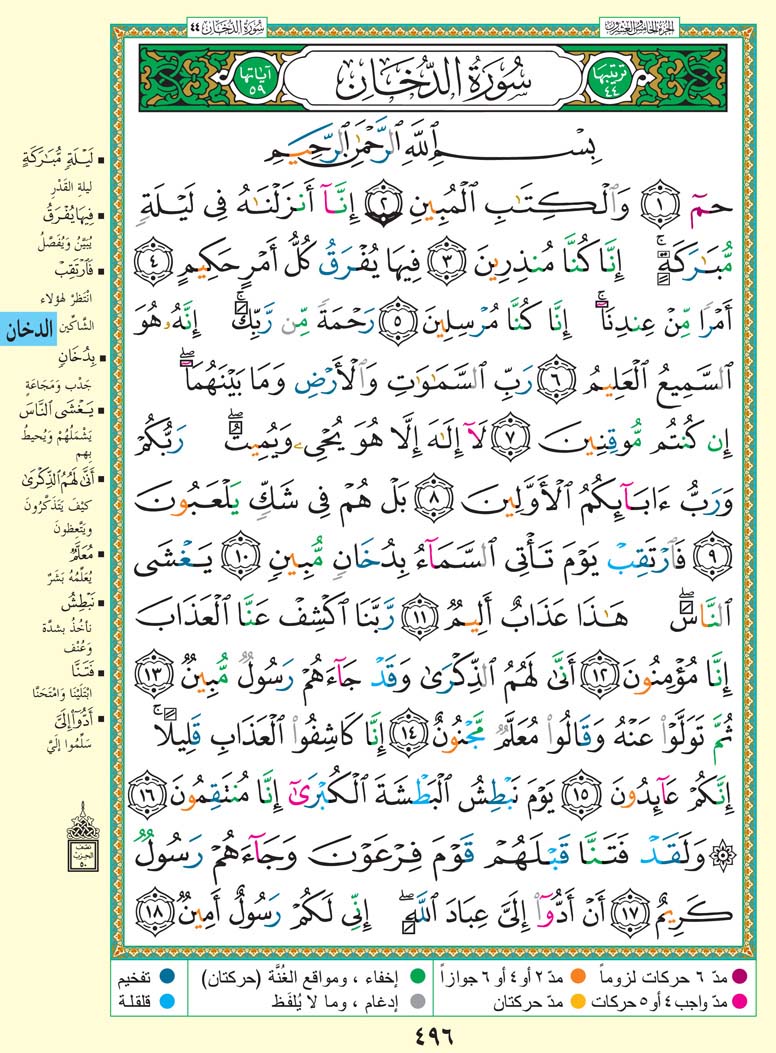 الجزء الخامس والعشرون
سورة الدخان ٤٤
ترتيبها ٤٤
سُورَةُ الدُّخَانِ
آياتها ٥٩
بِسْمِ ٱللَّهِ ٱلرَّحْمَٰنِ ٱلرَّحِيمِ
حمٓ ١ وَٱلْكِتَٰبِ ٱلْمُبِينِ ٢ إِنَّآ أَنزَلْنَٰهُ فِى لَيْلَةٍ
مُّبَٰرَكَةٍ ۚ إِنَّا كُنَّا مُنذِرِينَ ٣ فِيهَا يُفْرَقُ كُلُّ أَمْرٍ حَكِيمٍ ٤
أَمْرًا مِّنْ عِندِنَآ ۚ إِنَّا كُنَّا مُرْسِلِينَ ٥ رَحْمَةً مِّن رَّبِّكَ ۚ إِنَّهُۥ هُوَ
ٱلسَّمِيعُ ٱلْعَلِيمُ ٦ رَبِّ ٱلسَّمَٰوَٰتِ وَٱلْأَرْضِ وَمَا بَيْنَهُمَآ ۖ
إِن كُنتُم مُّوقِنِينَ ٧ لَآ إِلَٰهَ إِلَّا هُوَ يُحْىِۦ وَيُمِيتُ ۖ رَبُّكُمْ
وَرَبُّ ءَابَآئِكُمُ ٱلْأَوَّلِينَ ٨ بَلْ هُمْ فِى شَكٍّ يَلْعَبُونَ
٩ فَٱرْتَقِبْ يَوْمَ تَأْتِى ٱلسَّمَآءُ بِدُخَانٍ مُّبِينٍ ١٠ يَغْشَى
ٱلنَّاسَ ۖ هَٰذَا عَذَابٌ أَلِيمٌ ١١ رَّبَّنَا ٱكْشِفْ عَنَّا ٱلْعَذَابَ
إِنَّا مُؤْمِنُونَ ١٢ أَنَّىٰ لَهُمُ ٱلذِّكْرَىٰ وَقَدْ جَآءَهُمْ رَسُولٌ مُّبِينٌ ١٣
ثُمَّ تَوَلَّوْا۟ عَنْهُ وَقَالُوا۟ مُعَلَّمٌ مَّجْنُونٌ ١٤ إِنَّا كَاشِفُوا۟ ٱلْعَذَابِ قَلِيلًا ۚ
إِنَّكُمْ عَآئِدُونَ ١٥ يَوْمَ نَبْطِشُ ٱلْبَطْشَةَ ٱلْكُبْرَىٰٓ إِنَّا مُنتَقِمُونَ ١٦
۞ وَلَقَدْ فَتَنَّا قَبْلَهُمْ قَوْمَ فِرْعَوْنَ وَجَآءَهُمْ رَسُولٌ
كَرِيمٌ ١٧ أَنْ أَدُّوٓا۟ إِلَىَّ عِبَادَ ٱللَّهِ ۖ إِنِّى لَكُمْ رَسُولٌ أَمِينٌ ١٨
لَيْلَةٍ مُّبَٰرَكَةٍ
ليلة القَدْرِ
فِيهَا يُفْرَقُ
يُبَيَّنُ وَيُفَصَّلُ
فَٱرْتَقِبْ
انْتَظِرْ لهؤلاء
الشَّاكِّين
الدخان
بِدُخَانٍ
جَدْبٍ وَمَجَاعَةٍ
يَغْشَى ٱلنَّاسَ
يَشْمَلُهُمْ وَيُحيطُ
بهم
أَنَّىٰ لَهُمُ ٱلذِّكْرَىٰ
كيْفَ يَتَذَكَّرُونَ
ويتَّعِظونَ
مُعَلَّمٌ
يُعَلِّمُهُ بَشَرٌ
نَبْطِشُ
نأخُذُ بشدَّة
وَعُنْف
فَتَنَّا
ابْتَلَيْنَا وَامْتَحَنَّا
أَدُّوٓا۟ إِلَىَّ
سَلِّمُوا إليَّ
نصف
الحزب
٥٠
مدّ ٦ حركات لزوماً
مدّ ٢ أو ٤ أو ٦ جوازاً
إخفاء ، ومواقع الغُنَّة (حركتان)
تفخيم
مدّ واجب ٤ أو ٥ حركات
مدّ حركتان
إدغام ، وما لا يُلفَظ
قلقلة
٤٩٦